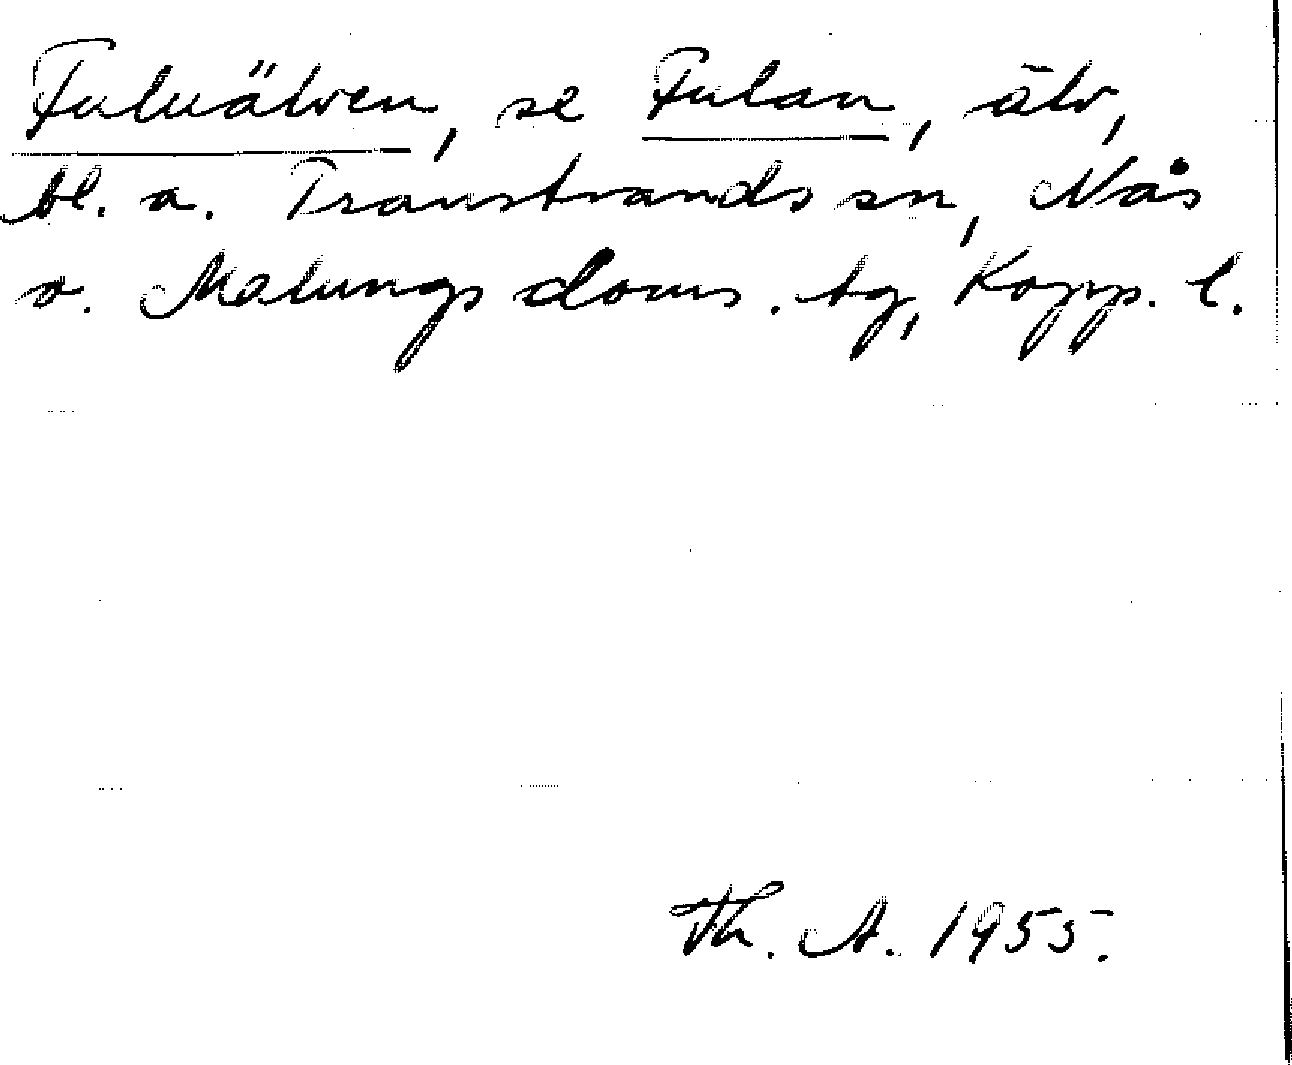 Fuluälven, se Fulan, älv,
bl. a. Transtrands sn, Nås
o. Malungs doms. tg, Kopp. l.
Th. A. 1955.